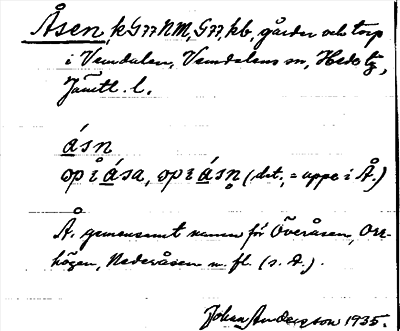 Åsen, kG77NM, G77, kb, gårdar och torp
i Vemdalen, Vemdalens sn, Hede tg,
Jämtl. l.
ásn
op i ása, op i ásn (dat., = uppe i Å.)
Å. gemensamt namn för Överåsen, Orr-
högen, Nederåsen m. fl. (s. d.).
Johan Anderzon 1935.